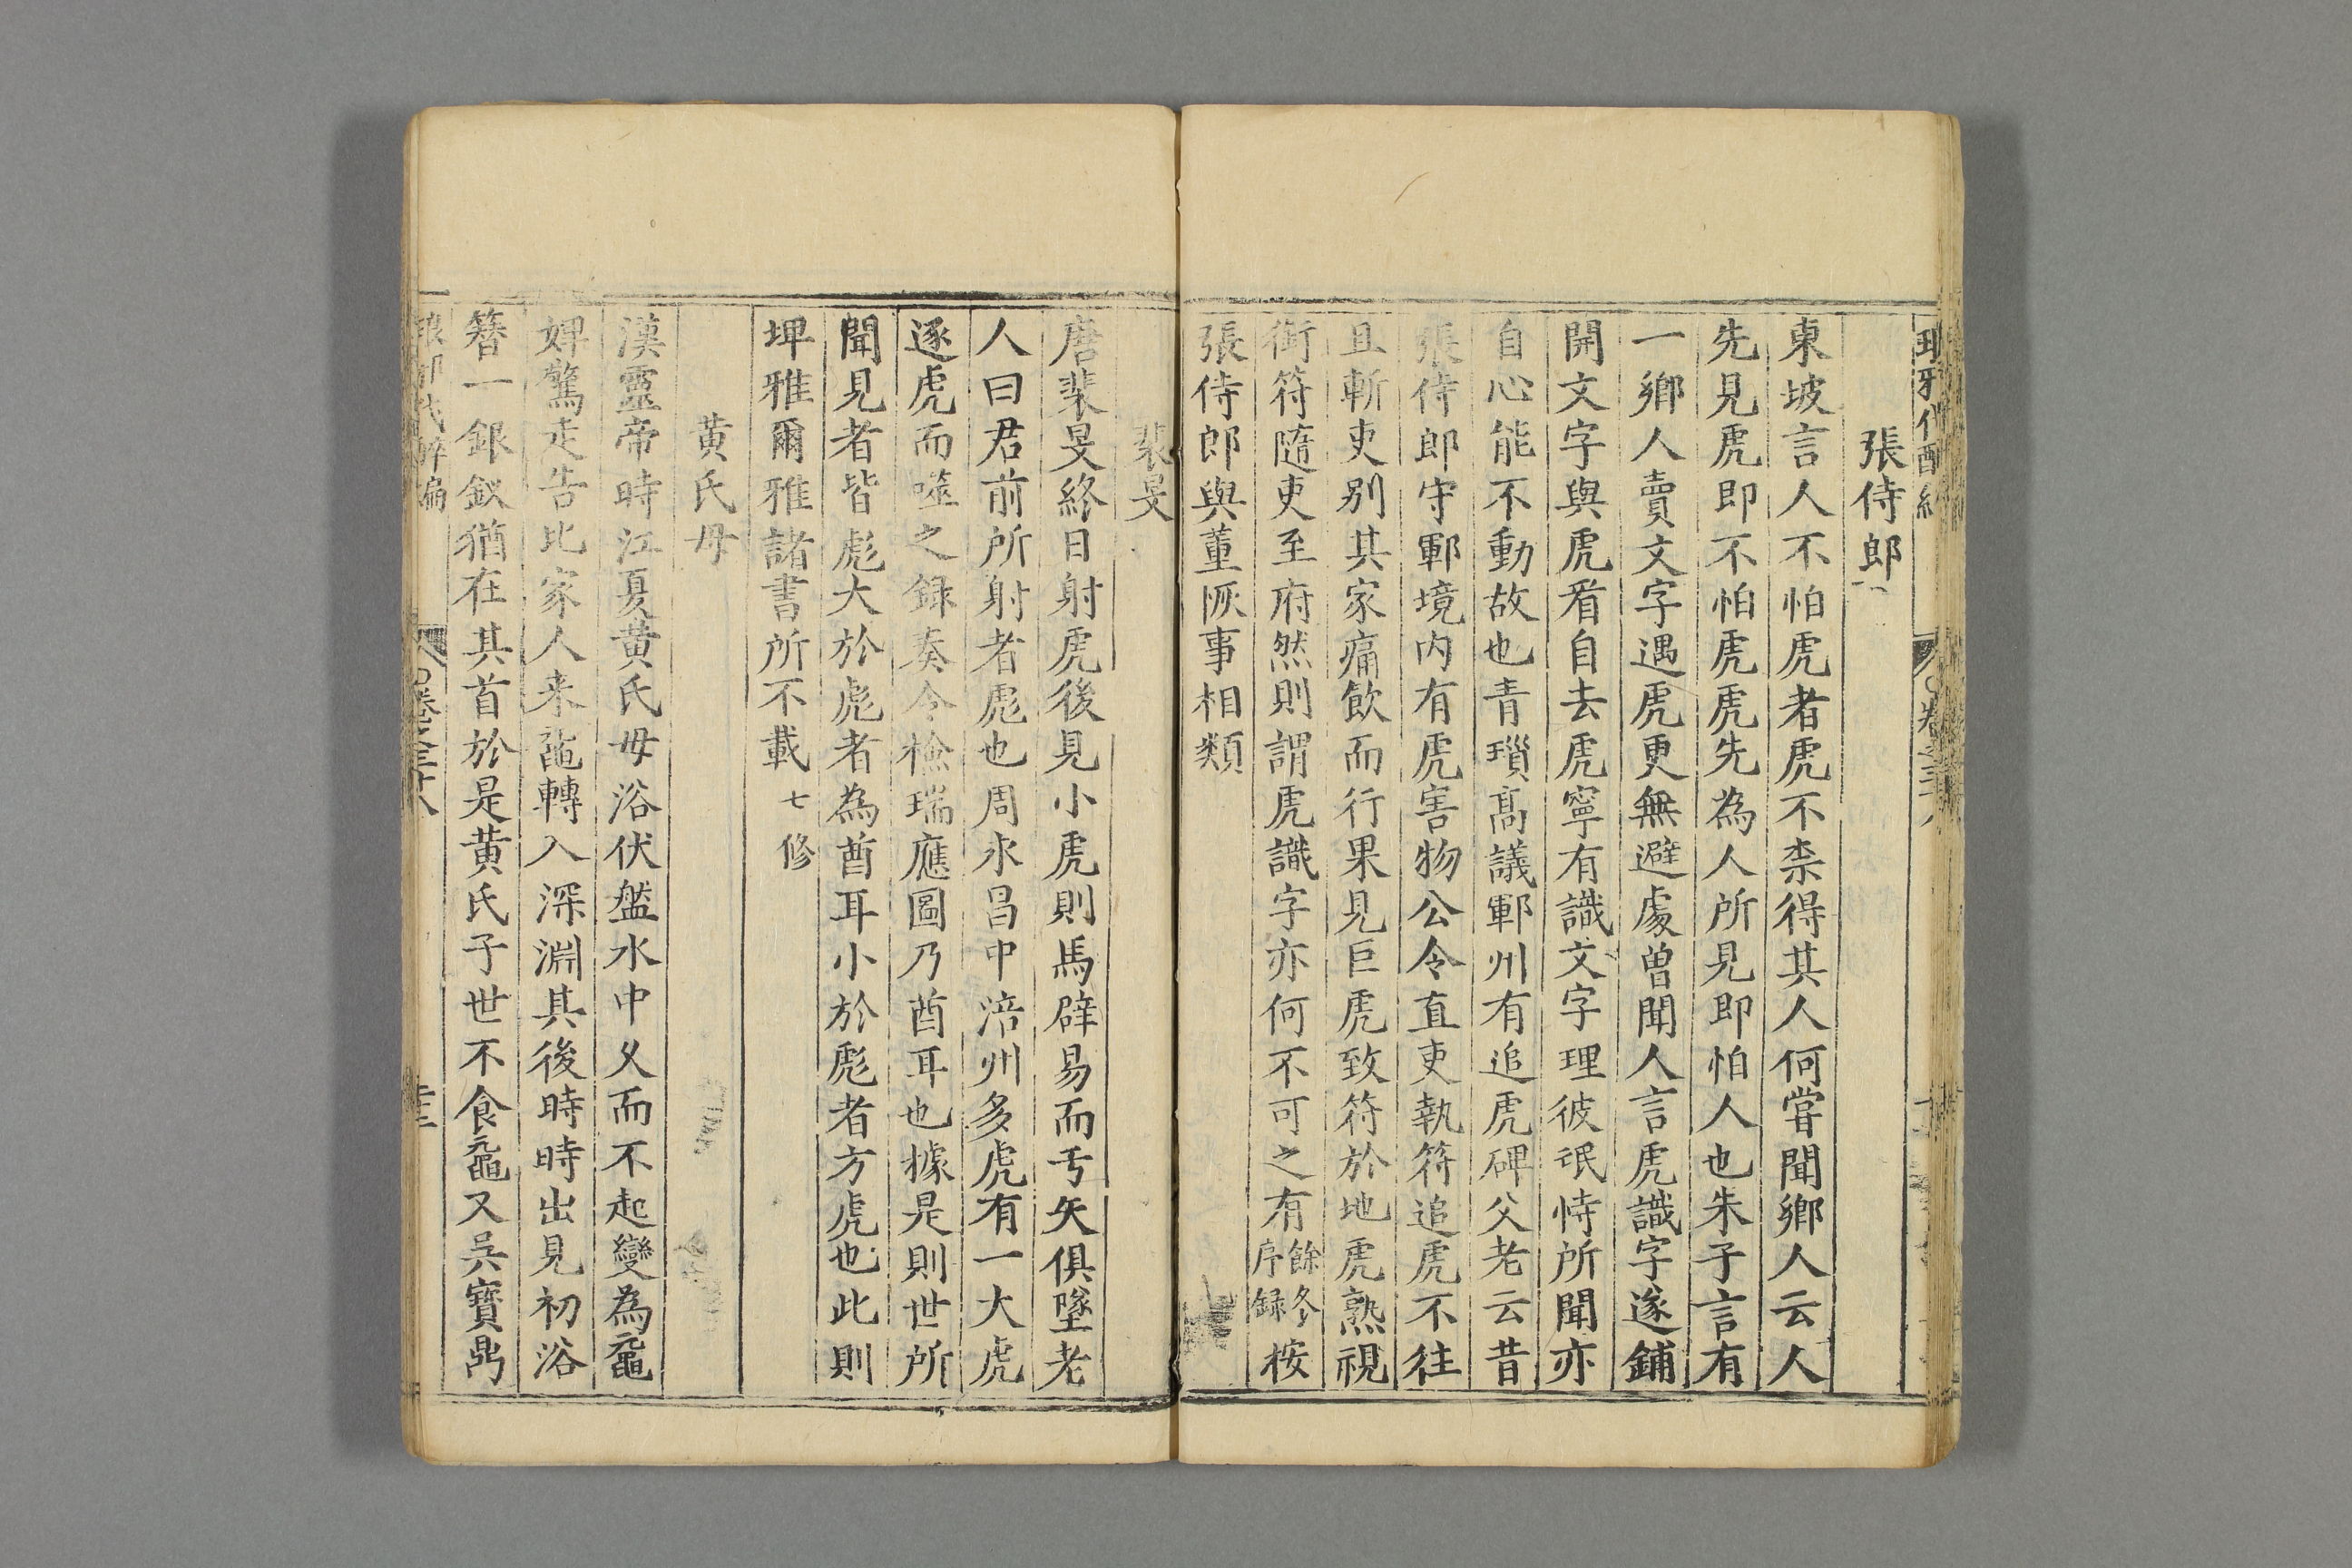 張侍郎
東坡言人不怕虎者虎不柰得其人何甞聞鄉人云人
先見虎即不怕虎虎先為人所見即怕人也朱子言有
一鄉人賣文字遇虎更無避處曽聞人言虎識字遂鋪
開文字與虎看自去虎寧有識文字理彼氓恃所聞亦
自心能不動故也青瑣髙議鄆州有追虎碑父老云昔
張侍郎守鄆境内有虎害物公令直吏執符追虎不往
且斬吏别其家痛飲而行果見巨虎致符於地虎熟視
銜符隨吏至府然則謂虎識字亦何不可之有餘冬序録桉
張侍郎與董恢事相類
裴旻
唐裴旻終日射虎後見小虎則馬辟易而弓矢俱墜老
人曰君前所射者彪也周永昌中涪州多虎有一大虎
逐虎而噬之録奏令檢瑞應圖乃酋耳也據是則世所
聞見者皆彪大於彪者為酋耳小於彪者方虎也此則
埤雅爾雅諸書所不載七修
黄氏母
漢靈帝時江夏黄氏母浴伏盤水中乆而不起變為黿
婢驚走告比家人来黿轉入深淵其後時時出見初浴
簪一銀釵猶在其首於是黄氏子世不食黿又吳寶鼎
卷之三十八